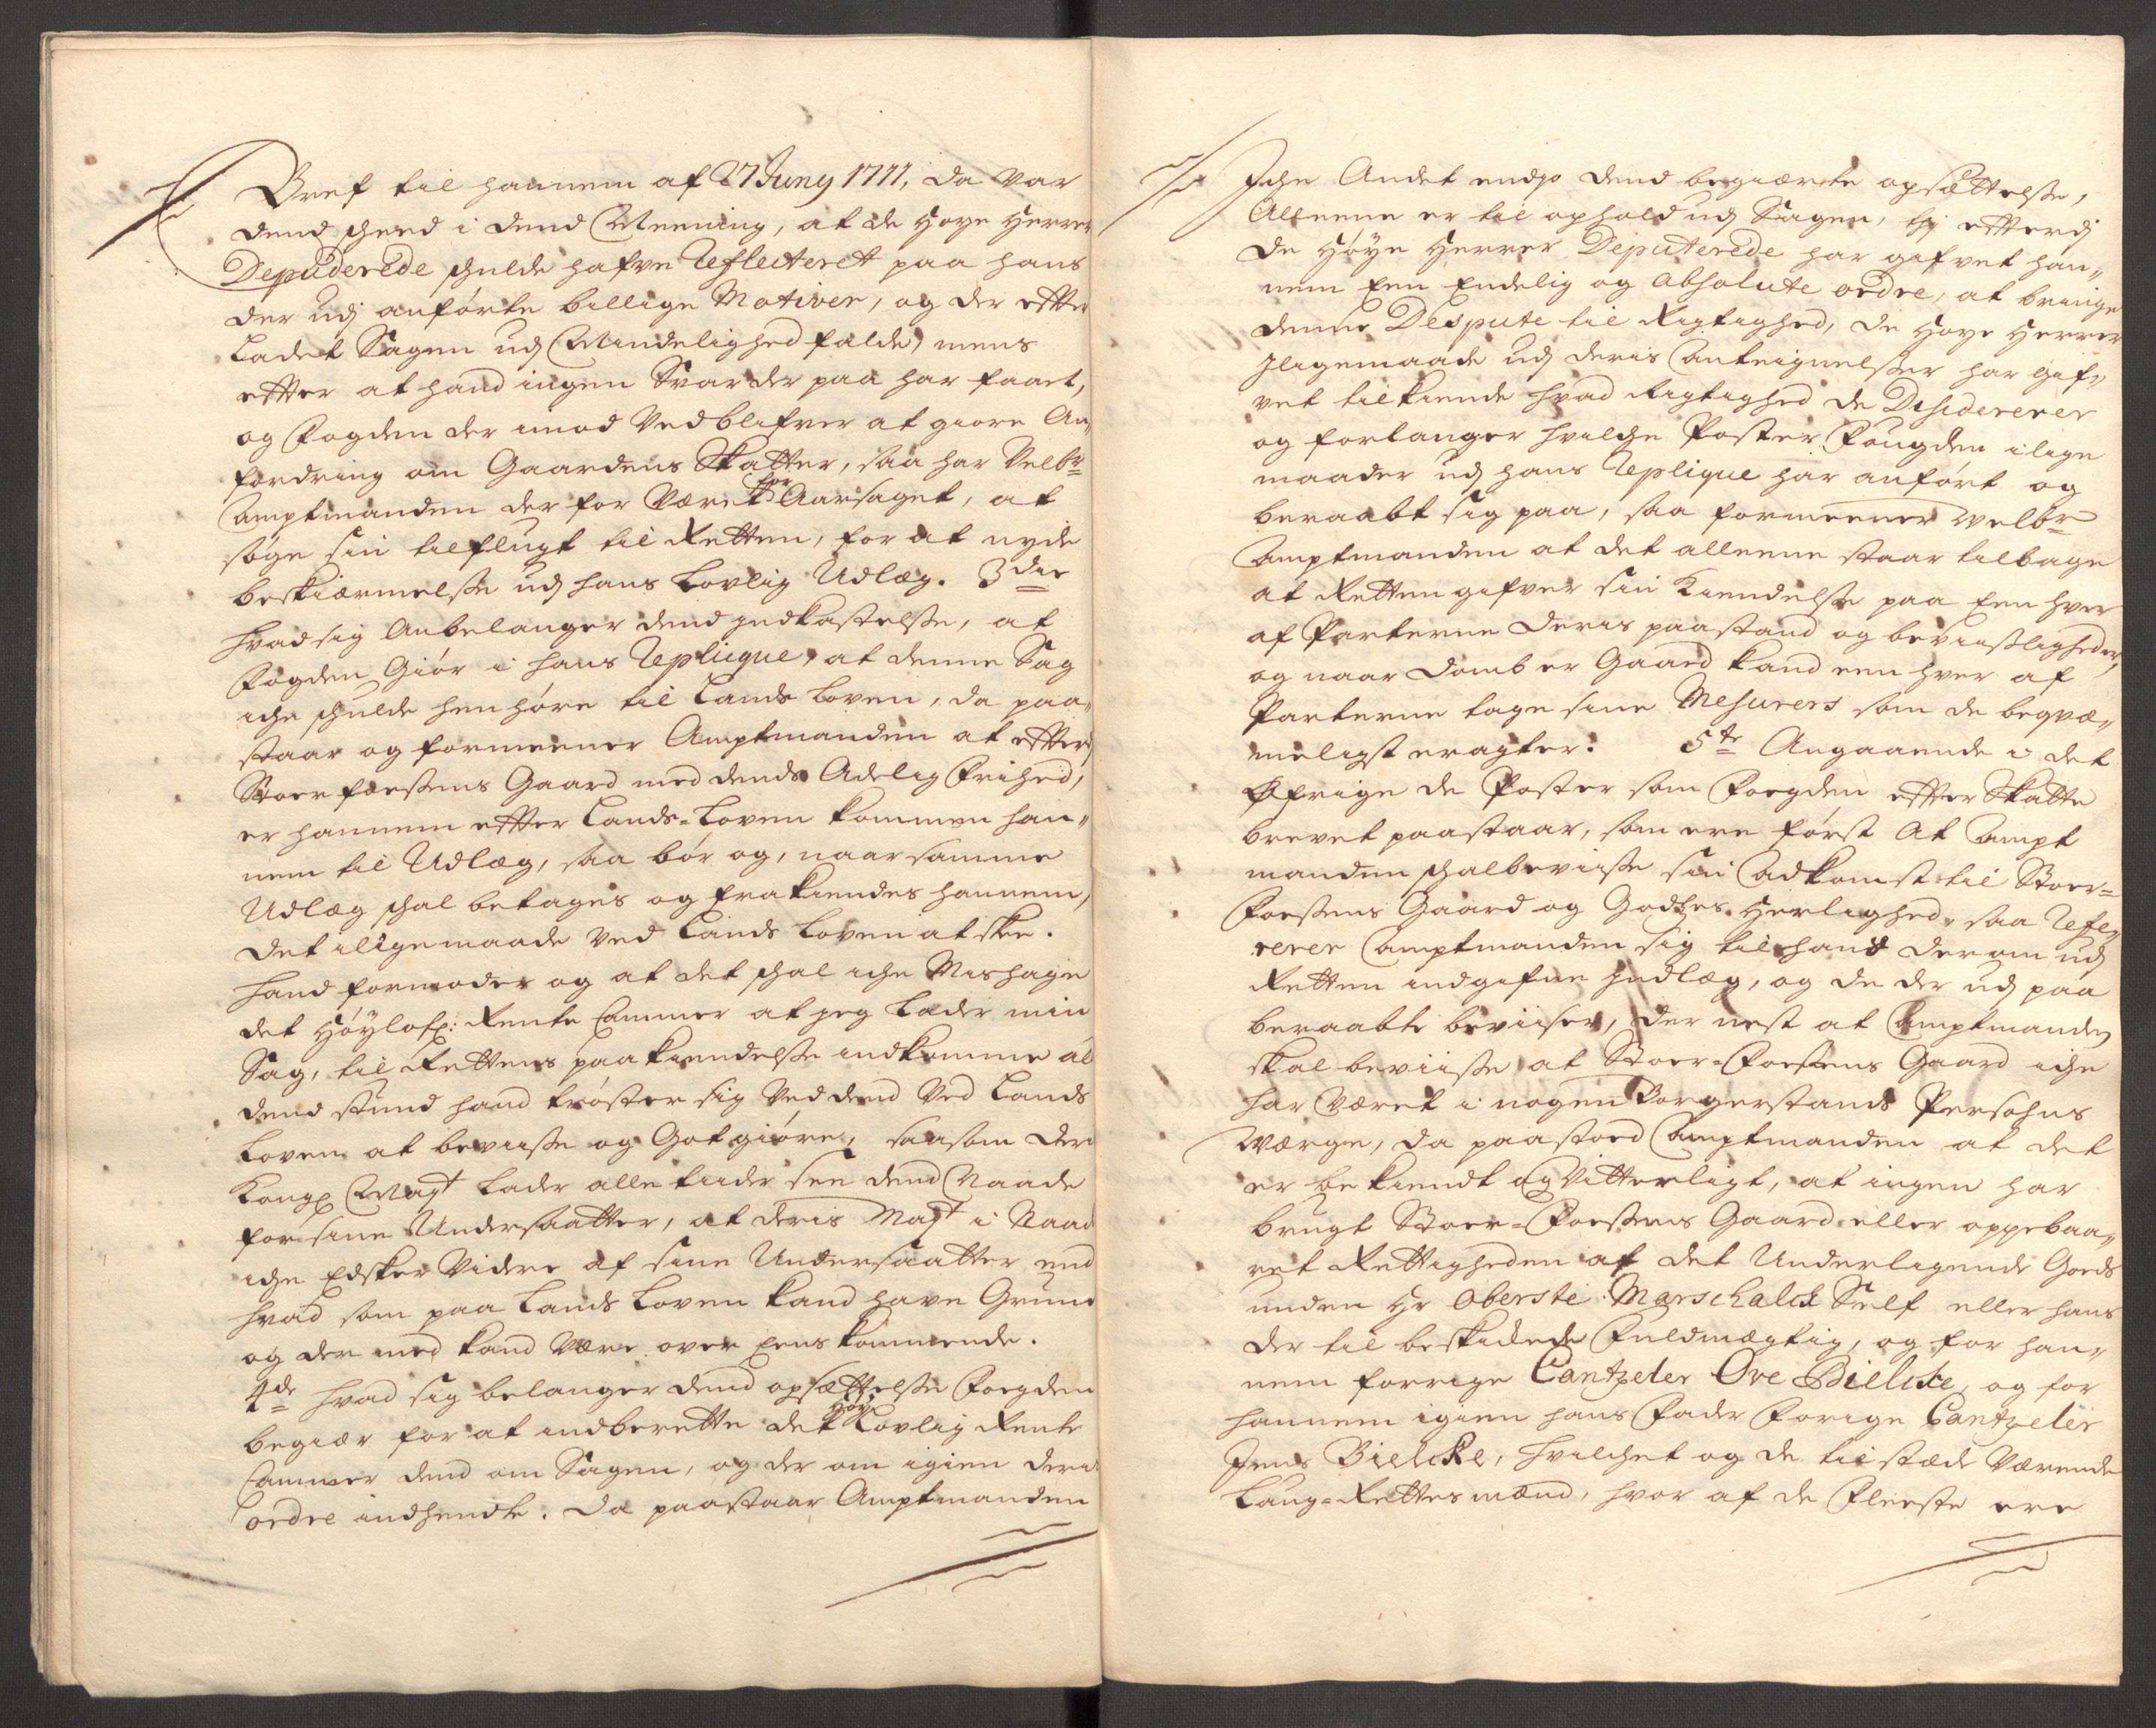 Bref til hannem af 27 Juny 1711, da var
dend scheed i dend Meening, at de Høye Herrer
Depuderede schulde hafve Reflecteret paa hans
der udj anførte billige Motiver, og der effter
Ladet Sagen udj Mindelighed falde, mens
effter at hand ingen Svar der paa har faaet,
og Fogden der imod Ved blifver at giøre An„
fordring om Gaardens Skatter, saa har Velbr
Amptmanden der for Været for Aarsaget, at
søge sin tilflugt til Retten, for at nyde
beskiærmelsse udj hans Lovlig Udlæg. 3die
Hvad sig Anbelanger dend Indkastelsse, at
Fogden Giør i hans Replicque, at denne Sag
iche schulde hen høre til Lands Loven, da paa„
staar og formeener Amptmanden at efftterdj
Stoer Foessens Gaard med dends Adelig Friheid,
er hannem effter Lands-Loven kommen han„
nem til Udlæg, saa bør og, naar samme
Udlæg schal betages og frakiendes hannem,
det iligemaade Ved Lands Loven at skee.
Hand formoder og at det schal iche Mishage
det Høylofl: Rente Cammer at jeg Lader min
Sag, til Rettens paakiendelsse indkomme al
dend stund hand trøster sig Ved dend Ved Lands
Loven at beviisse og Got giøre, saasom deris
Kongl Mayt Lader alle tiider see dend Naade
for sine Undersaatter, at deris Mayt i Naade
iche Edsker Videre af sine Undersaatter end
hvad som paa Lands Loven kand have Grund
og der med kand være over Eens kommende.
4de hvad sig belanger dend opsættelsse Foegden
begiær for at indberette det Høy Lovlig Rente
Cammer dend om Sagen, og der om igien deris
ordre indhendte. Da paastaar Amptmanden
Iche Andet endjo dend begiærte opsættelsse,
Alleene er til ophold udj Sagen, thj effterdj
de Høye Herrer Deputerede har gifvet han„
nem Een Endelig og Absolute ordre, at bringe
denne Despute til Rigtighed, de Høye Herrer
Iligemaade udj deris Anteignelsser har gif„
vet tilkiende hvad Rigtighed de Desidererer
og forlanger hvilche Poster Fougden i lige
maader udj hans Replique har anført og
beraabt sig paa, saa formeener Welbr
Amptmanden at det alleene staar tilbage
at Retten gifver sin Kiendelsse paa Een hver
af Parterne deris paastand og beviissligheder,
og naar domb er Gaaed kand een hver af
Parterne tage sine Mesurers som de beqvæ„
meligst eragter. 5te Angaaende i det
Øfrige de Poster som Foegden effter Skatte
brevet paastaar, som ere først At Ampt
manden schal beviisse sin Adkomst til Stoer-
Foessens Gaard og Godtzes Herlighed, saa Refe„
rerer Amptmanden sig til hans derom udj
Retten indgifne Indlæg, og de der udj paa
beraabte beviiser, der nest at Amptmanden
skal beviisse at Stoer-Foessens Gaard iche
har Været i nogen Borgerstands Persohns
Værge, da paastoed Amptmanden at det
er bekiendt og Vitterligt, at ingen har
brugt Stoer-Foessens Gaard eller oppebaa„
ret Rettigheden af det Underligende Goeds
unden Hr Oberste Marschalck Self eller hans
der til beskickede Fuldmægtig, og for han„
nem forrige Cantzeler Ove Bielcke, og for
hannem igien hans Fader Forige Cantzeler
Jens Bielcke, hvilchet og de tilstæde Værende
Laug-Rettesmænd, hvor af de Fleeste ere